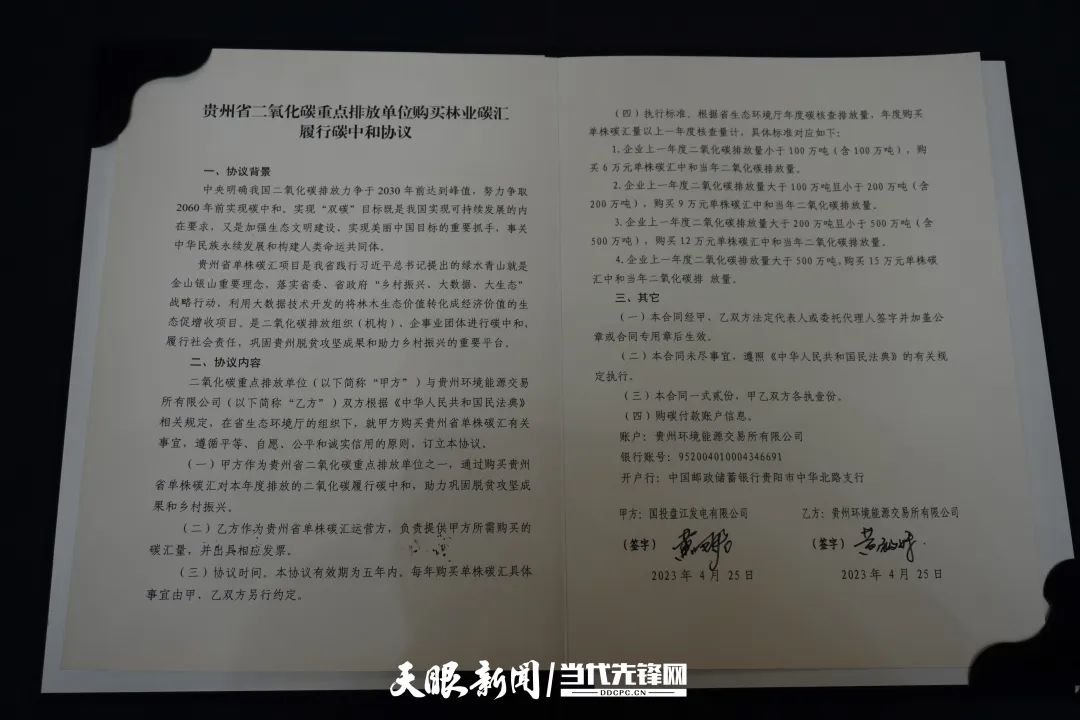 贵州省二氧化碳重点排放单位购买林业碳汇
履行碳中和协议
一、协议背景
中央明确我国二氧化碳排放力争于 2030 年前达到峰值，努力争取
2060 年前实现碳中和。实现“双碳”目标既是我国实现可持续发展的内
在要求，又是加强生态文明建设、实现美丽中国目标的重要抓手，事关
中华民族永续发展和构建人类命运共同体。
贵州省单株碳汇项目是我省践行习近平总书记提出的绿水青山就是
金山银山重要理念，落实省委、省政府“乡村振兴、大数据、大生态”
战略行动，利用大数据技术开发的将林木生态价值转化成经济价值的生
态促增收项目。是二氧化碳排放组织（机构）、企事业团体进行碳中和，
履行社会责任，巩固贵州脱贫攻坚成果和助力乡村振兴的重要平台。
二、协议内容
二氧化碳重点排放单位（以下简称“甲方”）与贵州环境能源交易
所有限公司（以下简称“乙方”）双方根据《中华人民共和国民法典》
相关规定，在省生态环境厅的组织下，就甲方购买贵州省单株碳汇有关
事宜，遵循平等、自愿、公平和诚实信用的原则，订立本协议。
（一）甲方作为贵州省二氧化碳重点排放单位之一，通过购买贵州
省单株碳汇对本年度排放的二氧化碳履行碳中和，助力巩固脱贫攻坚成
果和乡村振兴。
（二）乙方作为贵州省单株碳汇运营方，负责提供甲方所需购买的
碳汇量，并出具相应发票。
（三）协议时间。本协议有效期为五年内，每年购买单株碳汇具体
事宜由甲、乙双方另行约定。
（四）执行标准。根据省生态环境厅年度碳核查排放量，年度购买
单株碳汇量以上一年度核查量计，具体标准对应如下：
1.企业上一年度二氧化碳排放量小于 100 万吨（含 100 万吨），购
买 6 万元单株碳汇中和当年二氧化碳排放量。
2.企业上一年度二氧化碳排放量大于 100 万吨且小于 200 万吨（含
200 万吨），购买 9 万元单株碳汇中和当年二氧化碳排放量。
3.企业上一年度二氧化碳排放量大于 200 万吨且小于 500 万吨（含
500 万吨），购买 12 万元单株碳汇中和当年二氧化碳排放量。
4.企业上一年度二氧化碳排放量大于 500 万吨,购买 15 万元单株碳
汇中和当年二氧化碳排 放量。
三、其它
（一）本合同经甲、乙双方法定代表人或委托代理人签字并加盖公
章或合同专用章后生效。
（二）本合同未尽事宜，遵照《中华人民共和国民法典》的有关规
定执行。
（三）本合同一式贰份，甲乙双方各执壹份。
（四）购碳付款账户信息。
账户：贵州环境能源交易所有限公司
银行账号：952004010004346691
开户行：中国邮政储蓄银行贵阳市中华北路支行
甲方：国投盘江发电有限公司 乙方：贵州环境能源交易所有限公司
（签字） （签字）
2023 年 4 月 25 日 2023 年 4 月 25 日
天眼新闻/当代先锋网
DDCPC.CN